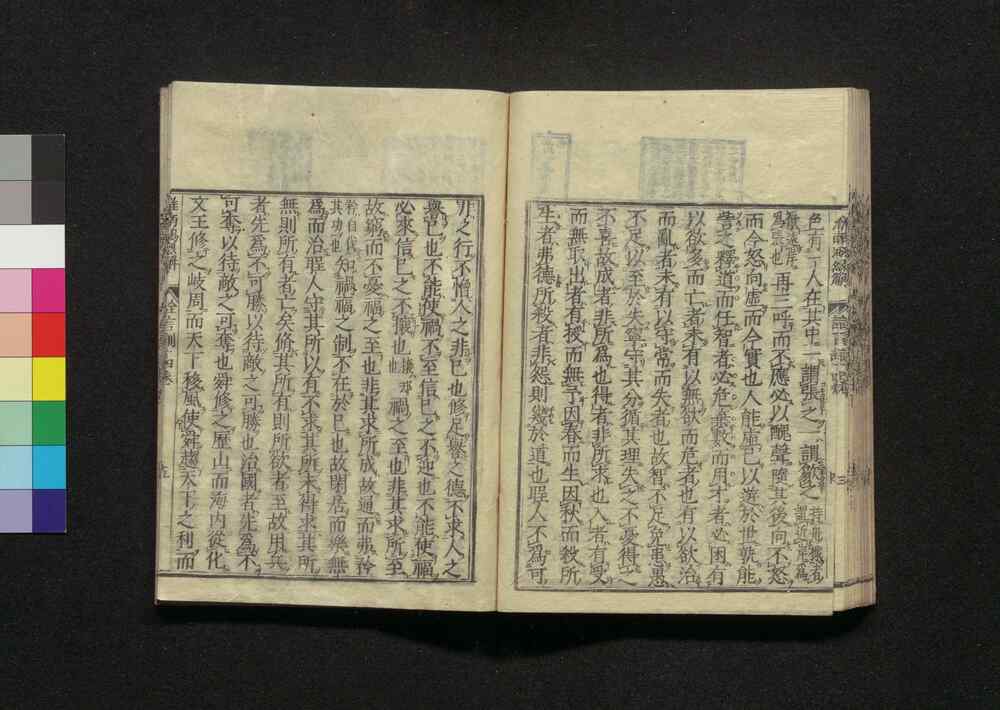 色有一人在其中一謂張之一謂歙之持舟檝者謂近岸爲
歙遠岸爲張也再三呼而不應必以醜聲隨其後向不怒
而今怒向虛而今實也人能虛己以游於世孰能
訾之釋道而任智者必危棄數而用才者必困有
以欲多而亡者未有以無欲而危者也有以欲治
而亂者未有以守常而失者也故智不足免患愚
不足以至於失寧守其分循其理失之不憂得之
不喜故成者非所爲也得者非所求也入者有受
而無取出者有授而無予因春而生因秋而殺所
生者弗德所殺者非怨則幾於道也聖人不爲可
非之行不憎人之非己也修足譽之德不求人之
譽己也不能使禍不至信己之不迎也不能使福
必來信己之不攘也禍之至也非其求所至
故窮而不憂福之至也非其求所成故通而弗矜
矜自伐其功也知禍福之制不在於己也故閑居而樂無
爲而治聖人守其所以有不求其所未得求其所
無則所有者亡矣脩其所有則所欲者至故用兵
者先爲不可勝以待敵之可勝也治國者先爲不
可奪以待敵之可奪也舜修之歷山而海内從化
文王修之岐周而天下移風使舜趨天下之利而